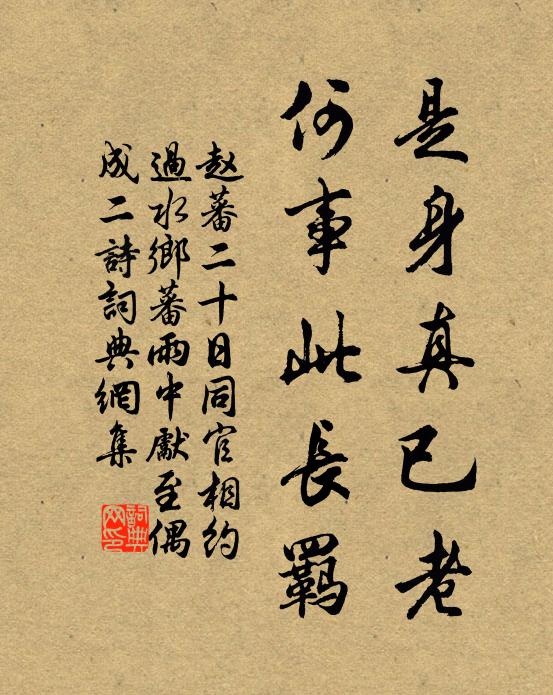 是身真已老
何事此長羈
赵蕃二十日同官相約
過水鄉蕃雨中獻至偶
成二詩詞典網集
詞典
网印